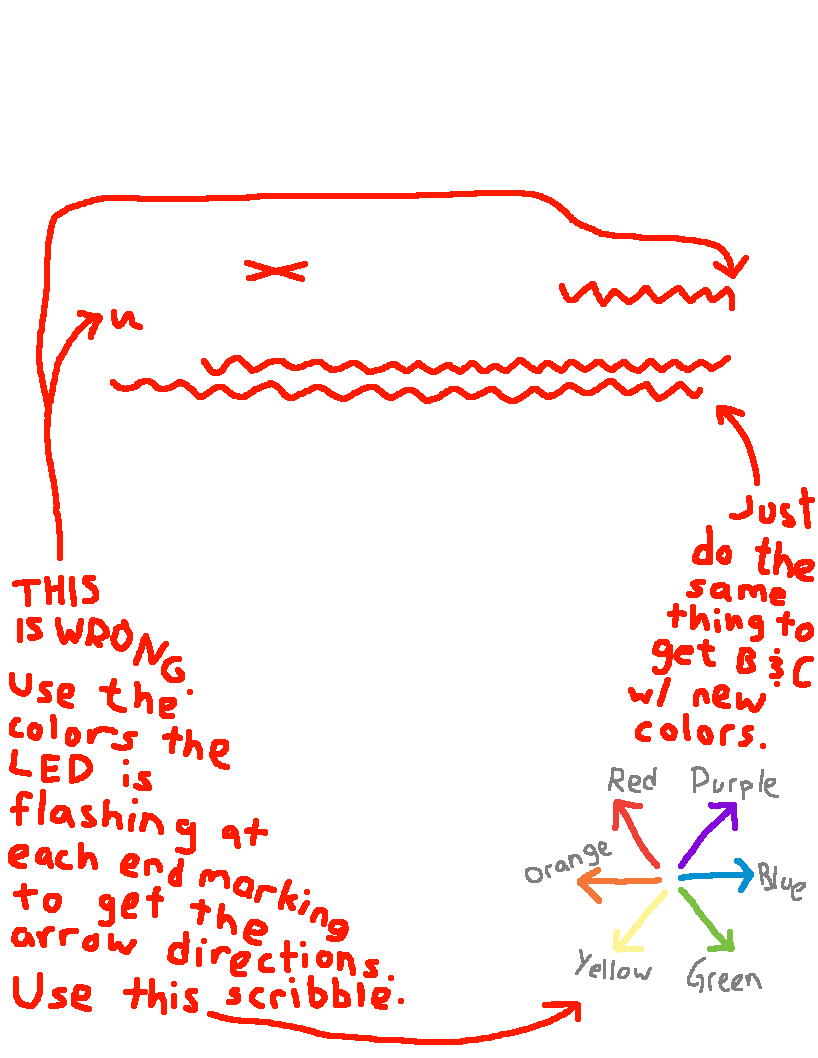 u
THIS
IS WRONG.
Use the
colors the
LED is
flashing at
each end marking
to get the
arrow directions.
Use this scribble.
Just
do the
same
thing to
get B & C
w/ new
colors.
Red Purple
Orange Blue
Yellow Green